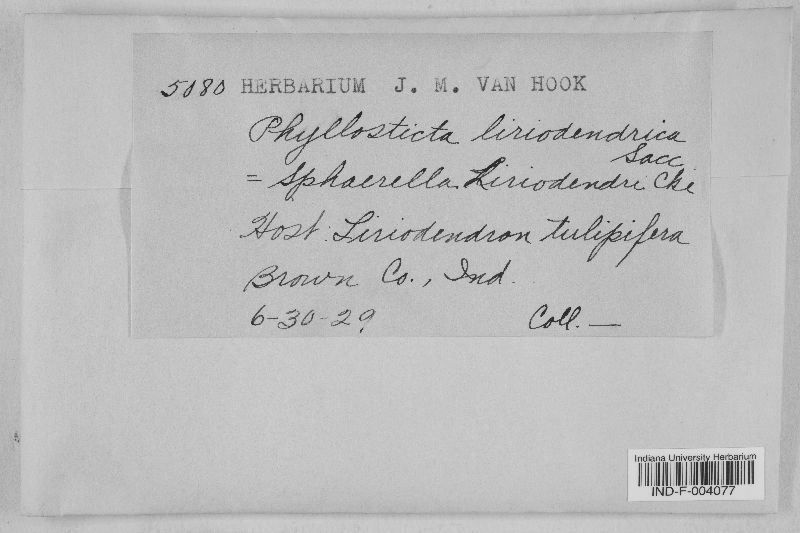 5080 HERBARIUM J. M. VAN HOOK
Phyllosticta liriodendrica
Sacc
= Sphaerella Liriodendri Cke
Host: Liriodendron tulipifera
Brown Co., Ind.
6-30-29 Coll. —
Indiana University Herbarium
IND-F-004077